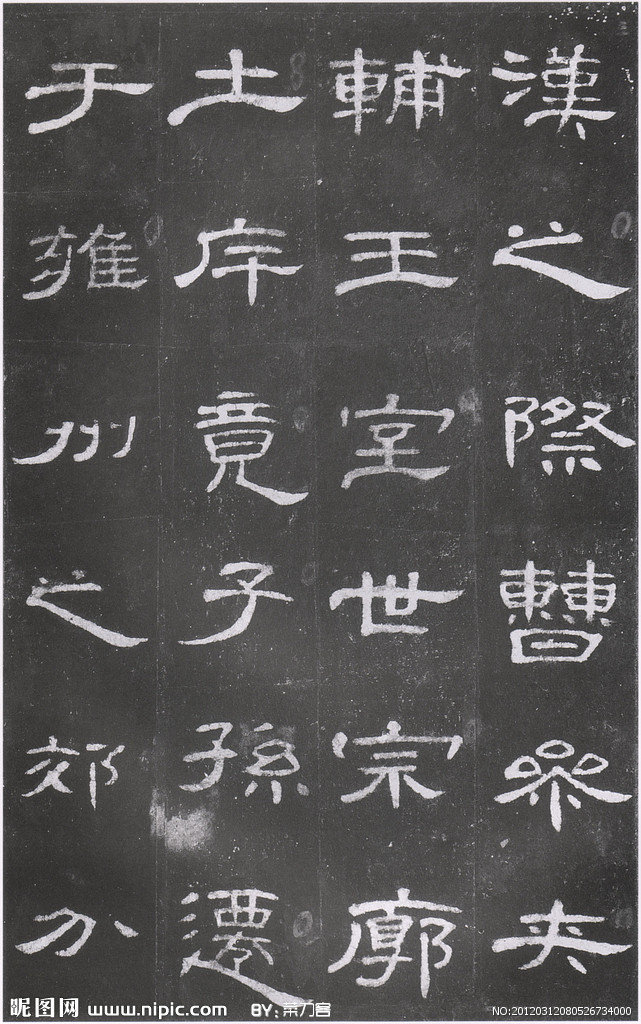 漢之際曹參夾
輔王室世宗廓
土斥竟子孫遷
于雍州之郊分
昵图网 www.nipic.com BY: NO:20120312080526734000